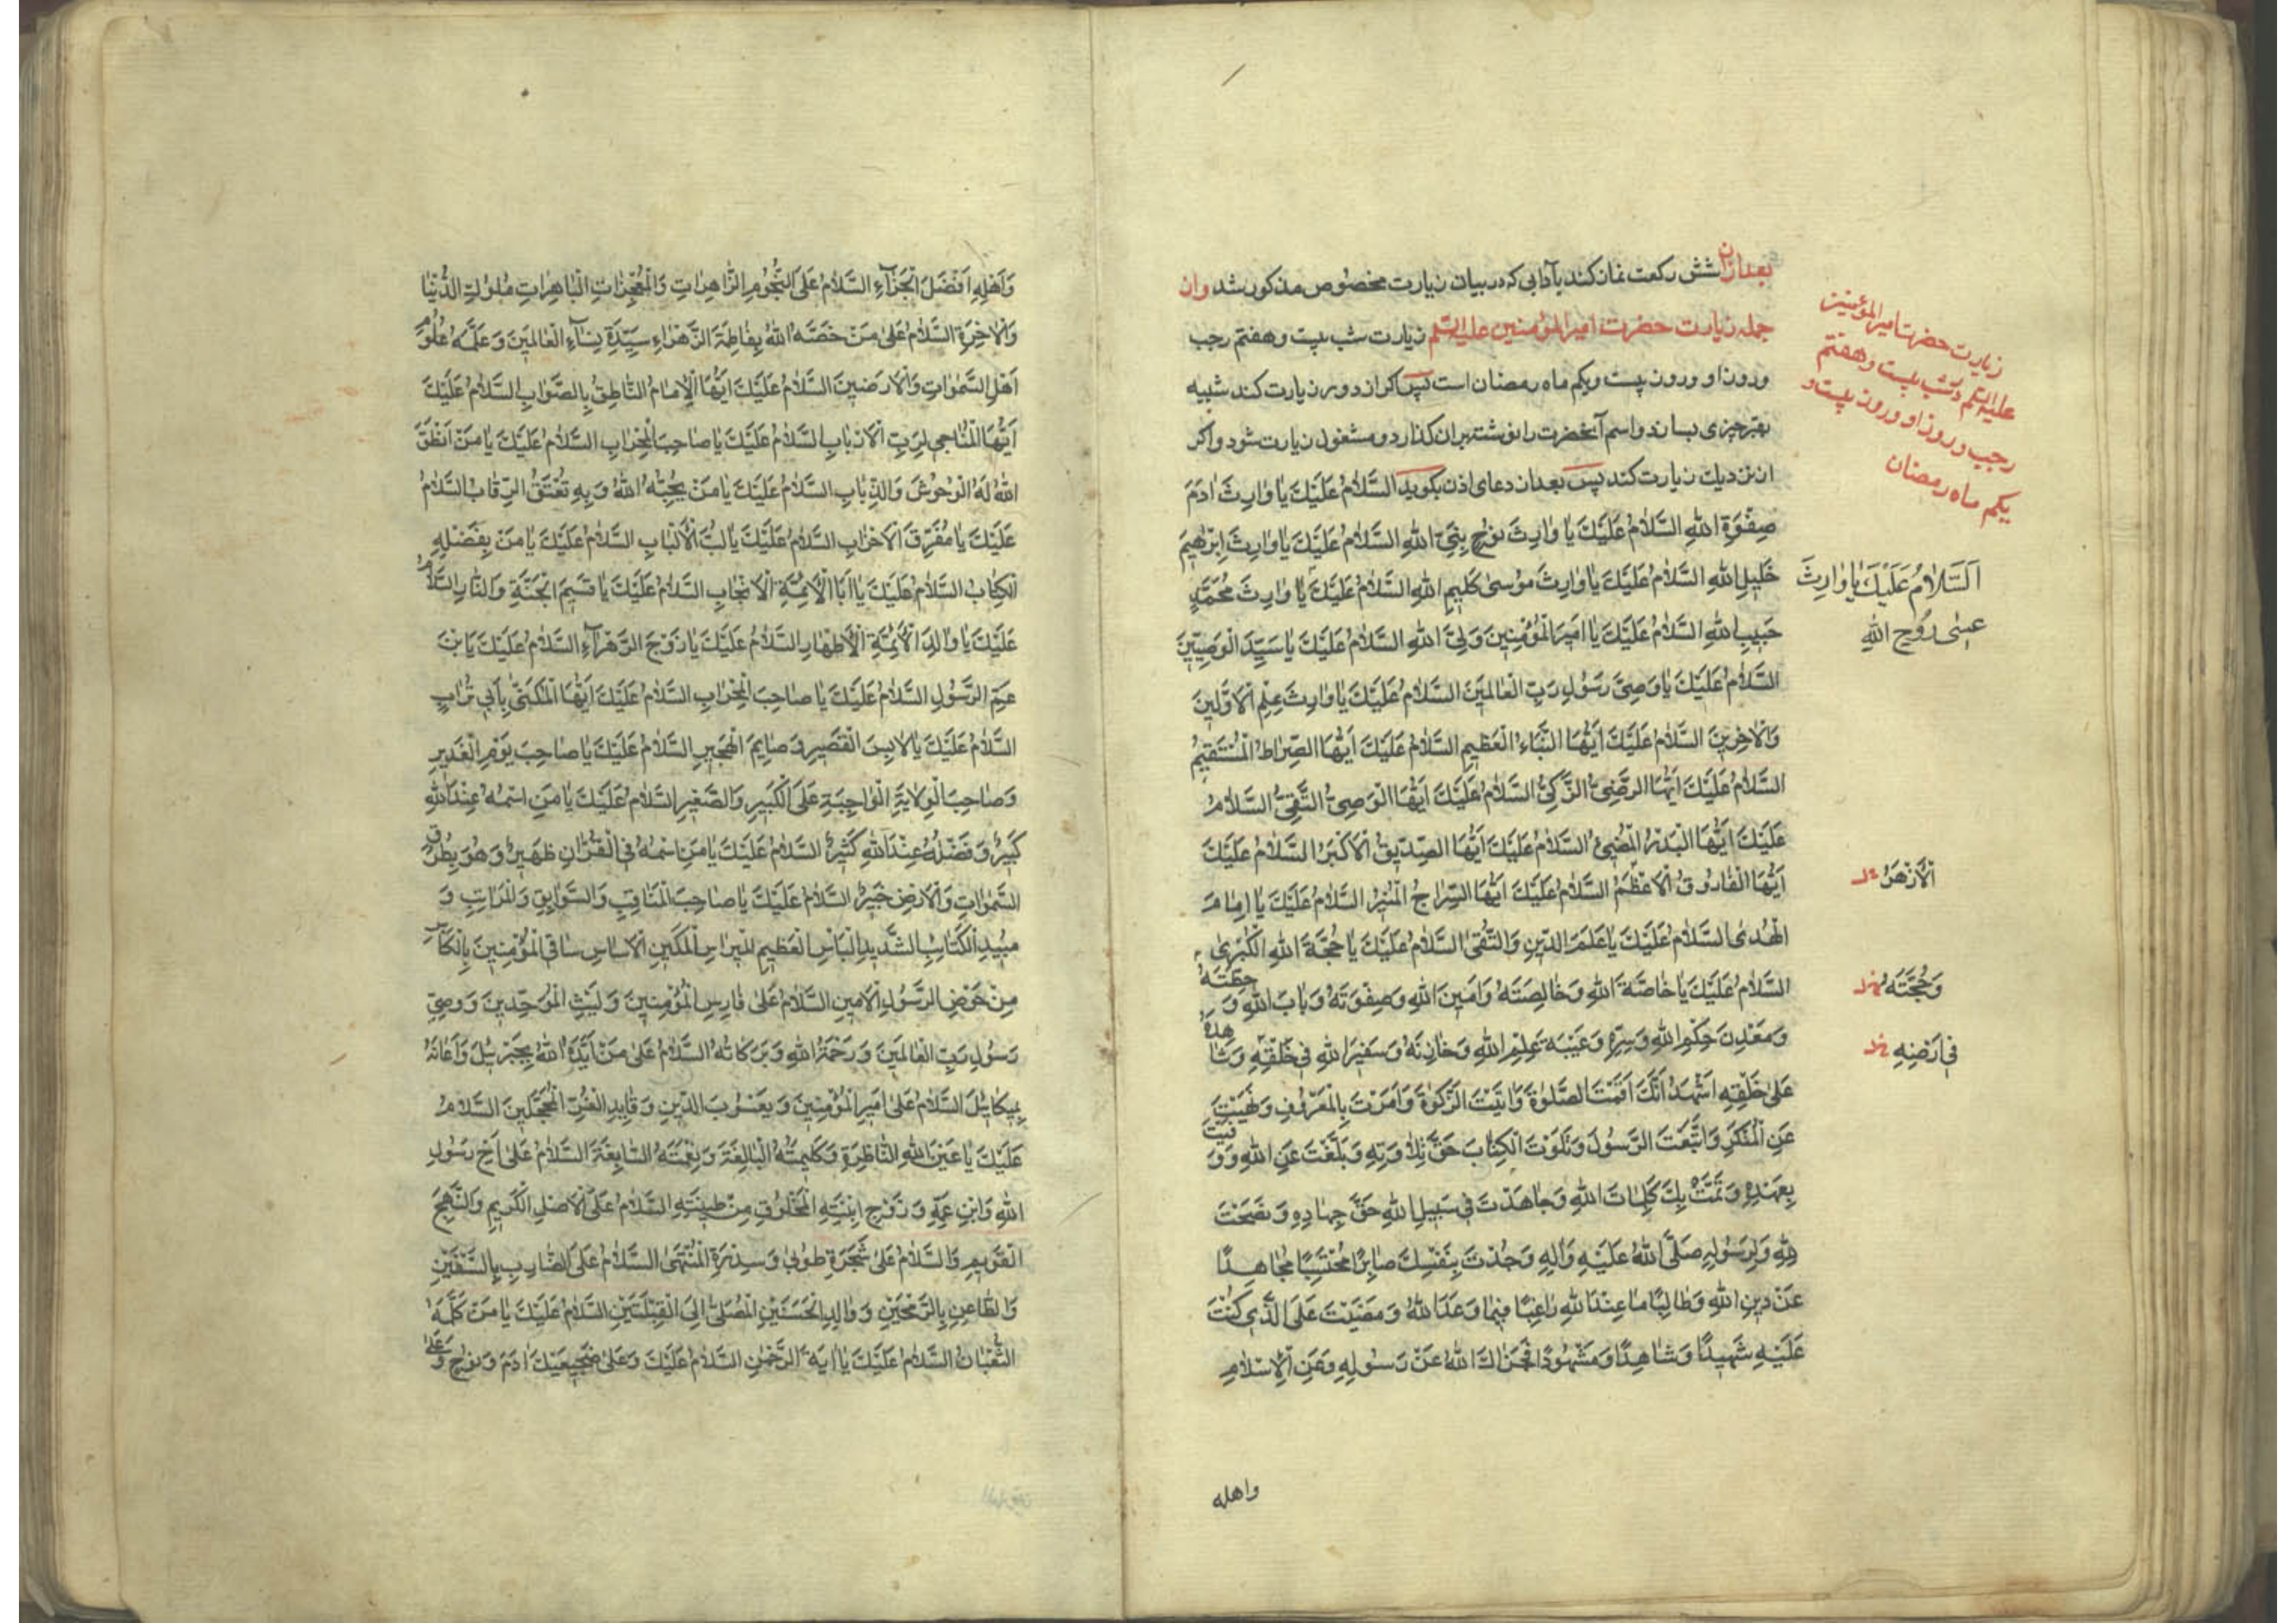 بعد ازان شش ركعت نماز كند بآدابی كه در بیان زیارت مخصوص مذكور شد وان
جمله زیارت حضرت امیر المؤمنین علیه السلم زیارت شب بیست و هفتم رجب
وروز او وروز بیست ویكم ماه رمضان است پس اكر از دور زیارت كند شبیه
بقبر چیزی بسازد واسم آنحضرت را نوشته بران كذارد و مشغول زیارت شود واكر
از نزدیك زیارت كند پس بعد از دعای اذن بكوید السَّلٰامُ عَلَيْكَ يٰا وٰارِثَ اٰدَمَ
صِفْوَةِ اللهِ السَّلٰامُ عَلَيْكَ يٰا وٰارِثَ نوُحٍ نَبِيِّ اللهِ السَّلٰامُ عَلَيْكَ يٰا وٰارِثَ اِبْرٰهيمَ
خَليلِ اللهِ السَّلٰامُ عَلَيْكَ يٰا وٰارِثَ موُسىٰ كَليمِ اللهِ السَّلٰامُ عَلَيْكَ يٰا وٰارِثَ مُحَمَّدٍ
حَبيبِ اللهِ السَّلٰامُ عَلَيْكَ يٰا اَميرَ الْمُؤْمِنينَ وَلِيَّ اللهِ السَّلٰامُ عَلَيْكَ يٰا سَيِّدَ الْوَصِيّينَ
السَّلٰامُ عَلَيْكَ يٰا وَصِيَّ رَسوُلِ رَبِّ الْعٰالَمينَ السَّلٰامُ عَلَيْكَ يٰا وٰارِثَ عِلْمِ الْاَوَّلينَ
وَالْاٰخِرينَ السَّلٰامُ عَلَيْكَ اَيُّهَا النَّبَاءُ الْعَظيمُ السَّلٰامُ عَلَيْكَ اَيُّهَا الصِّرٰاطُ الْمُسْتَقيمُ
السَّلٰامُ عَلَيْكَ اَيُّهَا الرَّضِيُّ الزَّكِيُّ السَّلٰامُ عَلَيْكَ اَيُّهَا الْوَصِيُّ التَّقِيُّ السَّلٰامُ
عَلَيْكَ اَيُّهَا الْبَدْرُ الْمُضيئُ السَّلٰامُ عَلَيْكَ اَيُّهَا الصِّدّيقُ الْاَكْبَرُ السَّلٰامُ عَلَيْكَ
اَيُّهَا الْفٰاروُقُ الْاَعْظَمُ السَّلٰامُ عَلَيْكَ اَيُّهَا السِّرٰاجُ الْمُنيرُ السَّلٰامُ عَلَيْكَ يٰا اِمٰامَ
الْهُدىٰ السَّلٰامُ عَلَيْكَ يٰا عَلَمَ الدّينِ وَالتُّقىٰ السَّلٰامُ عَلَيْكَ يٰا حُجَّةَ اللهِ الْكُبْرىٰ
السَّلٰامُ عَلَيْكَ يٰا خٰاصَّةَ اللهِ وَخٰالِصَتَهُ وَاَمينَ اللهِ وَصِفْوَتَهُ وَبٰابَ اللهِ وَ حِطَّتَهُ
وَمَعْدِنَ حِكَمِ اللهِ وَسِرِّهِ وَعَيْبَةَ عِلْمِ اللهِ وَخٰازِنَهُ وَسَفيرَ اللهِ في خَلْقِهِ وَشٰاهِدَهُ
عَلىٰ خَلْقِهِ اَشْهَدُ اَنَّكَ اَقَمْتَ الصَّلوٰةَ وَاٰتَيْتَ الزَّكوٰةَ وَاَمَرْتَ بِالْمَعْروُفِ وَنَهَيْتَ
عَنِ الْمُنْكَرِ وَاتَّبَعْتَ الرَّسوُلَ وَتَلَوْتَ الْكِتٰابَ حَقَّ تِلٰاوَتِهِ وَبَلَّغْتَ عَنِ اللهِ وَوَفَيْتَ
بِعَهْدِهِ وَتَمَّتْ بِكَ كَلِمٰاتُ اللهِ وَجٰاهَدْتَ في سَبيلِ اللهِ حَقَّ جِهٰادِهِ وَنَصَحْتَ
لِلّٰهِ وَلِرَسوُلِهِ صَلَّى اللهُ عَلَيْهِ وَاٰلِهِ وَجُدْتَ بِنَفْسِكَ صٰابِرًا مُحْتَسِبًا مُجٰاهِدًا
عَنْ دينِ اللهِ وَطٰالِبًا مٰا عِنْدَ اللهِ رٰاغِبًا فيمٰا وَعَدَ اللهُ وَمَضَيْتَ عَلَى الَّذي كُنْتَ
عَلَيْهِ شَهيدًا وَشٰاهِدًا وَمَشْهوُدًا فَجَزٰاكَ اللهُ عَنْ رَسوُلِهِ وَعَنِ الْاِسْلٰامِ
واهله
زیارت حضرت امیر المؤمنین
علیه السلم در شب بیست و هفتم
رجب وروز او وروز بیست و
یكم ماه رمضان
اَلسَّلٰامُ عَلَيْكَ يٰا وٰارِثَ
عيسٰى روُحِ اللهِ
الْاَزْهَرُ
وَحُجَّتَهُ
في اَرْضِهِ
وَاَهْلِهِ اَفْضَلَ الْجَزٰآءِ السَّلٰامُ عَلَى النُّجوُمِ الزّٰاهِرٰاتِ وَالْمُعْجِزٰاتِ الْبٰاهِرٰاتِ مُلوُكِ الدُّنْيٰا
وَالْاٰخِرَةِ السَّلٰامُ عَلىٰ مَنْ خَصَّهُ اللهُ بِفٰاطِمَةَ الزَّهْرٰاءِ سَيِّدَةِ نِسٰآءِ الْعٰالَمينَ وَعَلَّمَهُ عُلوُمَ
اَهْلِ السَّمٰوٰاتِ وَالْاَرَضينَ السَّلٰامُ عَلَيْكَ اَيُّهَا الْاِمٰامُ النّٰاطِقُ بِالصَّوٰابِ السَّلٰامُ عَلَيْكَ
اَيُّهَا الْمُنٰاجي لِرَبِّ الْاَرْبٰابِ السَّلٰامُ عَلَيْكَ يٰا صٰاحِبَ الْمِحْرٰابِ السَّلٰامُ عَلَيْكَ يٰا مَنْ اَنْطَقَ
اللهُ لَهُ الْوُحوُشَ وَالذِّيٰابِ السَّلٰامُ عَلَيْكَ يٰا مَنْ يُحِبُّهُ اللهُ وَبِهِ تُعْتَقُ الرِّقٰابُ السَّلٰامُ
عَلَيْكَ يٰا مُفَرِّقَ الْاَحْزٰابِ السَّلٰامُ عَلَيْكَ يٰا لُبَّ الْاَلْبٰابِ السَّلٰامُ عَلَيْكَ يٰا مَنْ بِفَضْلِهِ
الْكِتٰابُ السَّلٰامُ عَلَيْكَ يٰا اَبَا الْاَئِمَّةِ الْاَنْجٰابِ السَّلٰامُ عَلَيْكَ يٰا قَسيمَ الْجَنَّةِ وَالنّٰارِ السَّلٰامُ
عَلَيْكَ يٰا وٰالِدَ الْاَئِمَّةِ الْاَطْهٰارِ السَّلٰامُ عَلَيْكَ يٰا زَوْجَ الزَّهْرٰآءِ السَّلٰامُ عَلَيْكَ يَا بْنَ
عَمِّ الرَّسوُلِ السَّلٰامُ عَلَيْكَ يٰا صٰاحِبَ الْمِحْرٰابِ السَّلٰامُ عَلَيْكَ اَيُّهَا الْمُكَنّىٰ بِاَبي تُرٰابٍ
السَّلٰامُ عَلَيْكَ يٰا لٰابِسَ الْقَصيرِ وَ صٰايِمَ الْهَجيرِ السَّلٰامُ عَلَيْكَ يٰا صٰاحِبَ يَوْمِ الْغَديرِ
وَصٰاحِبَ الْوِلٰايَةِ الْوٰاجِبَةِ عَلَى الْكَبيرِ وَالصَّغيرِ السَّلٰامُ عَلَيْكَ يٰا مَنِ اسْمُهُ عِنْدَ اللهِ
كَبيرٌ وَفَضْلُهُ عِنْدَ اللهِ كَثيرٌ السَّلٰامُ عَلَيْكَ يٰا مَنِ اسْمُهُ فِي الْقُرْاٰنِ ظَهيرٌ وَهُوَ بِطُرُقِ
السَّمٰوٰاتِ وَالْاَرْضِ خَبيرٌ السَّلٰامُ عَلَيْكَ يٰا صٰاحِبَ الْمَنٰاقِبِ وَالسَّوٰابِقِ وَالْمَرٰاتِبِ وَ
مُبيدِ الْكَتٰائِبِ الشَّديدِ الْبَأْسِ الْعَظيمِ الْمِرٰاسِ الْمَكينِ الْاَسٰاسِ سٰاقِي الْمُؤْمِنينَ بِالْكَأْسِ
مِنْ حَوْضِ الرَّسوُلِ الْاَمينِ السَّلٰامُ عَلىٰ فٰارِسِ الْمُؤْمِنينَ وَلَيْثِ الْمُوَحِّدينَ وَوَصِيِّ
رَسوُلِ رَبِّ الْعٰالَمينَ وَرَحْمَةُ اللهِ وَبَرَكاتُهُ السَّلٰامُ عَلىٰ مَنْ اَيَّدَهُ اللهُ بِجِبْرَئيلَ وَاَعٰانَهُ
بِميكٰائيلَ السَّلٰامُ عَلىٰ اَميرِ الْمُؤْمِنينَ وَيَعْسوُبِ الدّينِ وَقٰايِدِ الْغُرِّ الْمُحَجَّلينَ السَّلٰامُ
عَلَيْكَ يٰا عَيْنَ اللهِ النّٰاظِرَةِ وَكَلِمَتُهُ الْبٰالِغَةَ وَنِعْمَتَهُ السّٰابِغَةَ السَّلٰامُ عَلىٰ اَخِ رَسوُلِ
اللهِ وَابْنِ عَمِّهِ وَ زَوْجِ ابْنَتِهِ الْمَخْلوُقِ مِنْ طينَتِهِ السَّلٰامُ عَلَى الْاَصْلِ الْكَريمِ وَالنَّهْجِ
الْقَويمِ وَالسَّلٰامُ عَلىٰ شَجَرَةِ طوُبىٰ وَسِدْرَةِ الْمُنْتَهىٰ السَّلٰامُ عَلَى الضّٰارِبِ بِالسَّيْفَيْنِ
وَالطّٰاعِنِ بِالرُّمْحَيْنِ وَ وٰالِدِ الْحَسَنَيْنِ الْمُصَلّي اِلَى الْقِبْلَتَيْنِ السَّلٰامُ عَلَيْكَ يٰا مَنْ كَلَّمَهُ
الثُّعْبٰانُ السَّلٰامُ عَلَيْكَ يٰا اٰيَةَ الرَّحْمٰنِ السَّلٰامُ عَلَيْكَ وَعَلىٰ ضَجيعَيْكَ اٰدَمَ وَنوُحٍ وَعَلىٰ